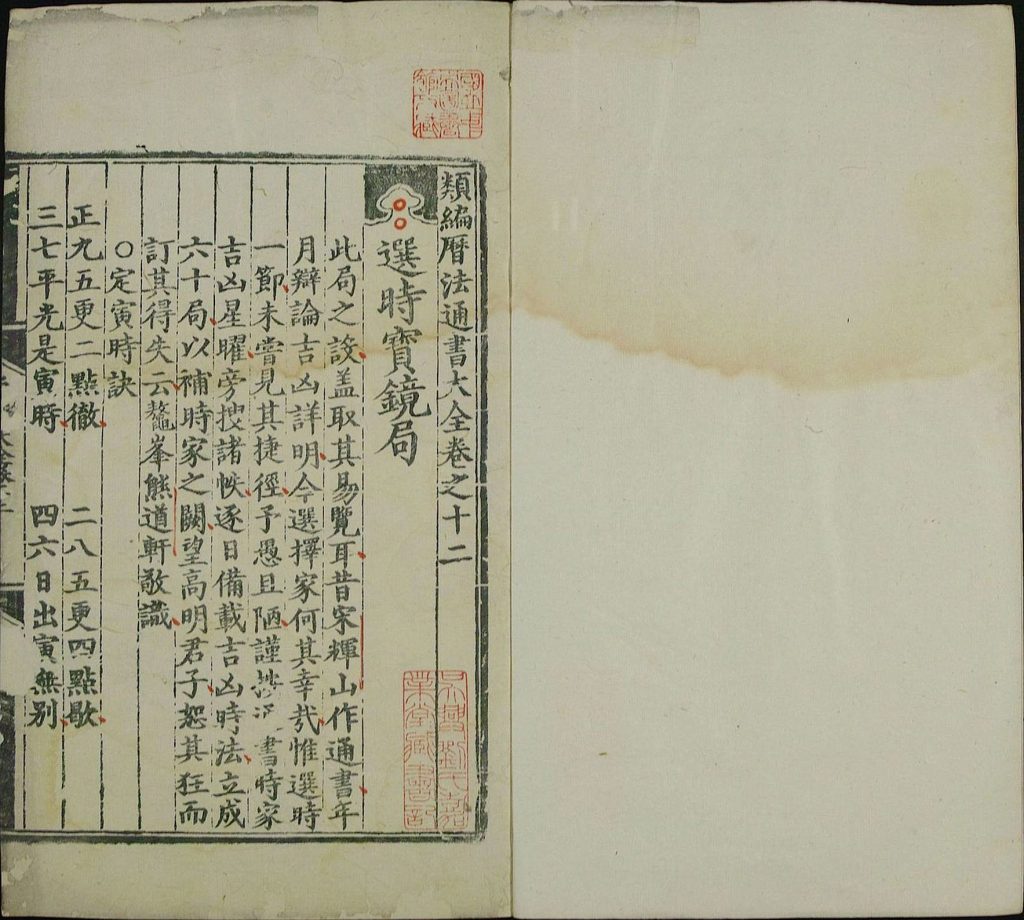 類編曆法通書大全卷之十二
選時寶鏡局
此局之設蓋取其昜覽耳昔宋輝山作通書年
月辯論吉凶詳明今選擇家何其幸㦲惟選時
一節未嘗見其捷徑予愚且陋謹抄 書時家
吉凶星曜旁搜諸帙逐日備載吉凶時法立成
六十局以補時家之闕望高明君子恕其狂而
訂其得失云鼇峯熊道軒敬識
○定寅時訣
正九五更二點徹 二八五更四點歇
三七平光是寅時 四六日出寅無别